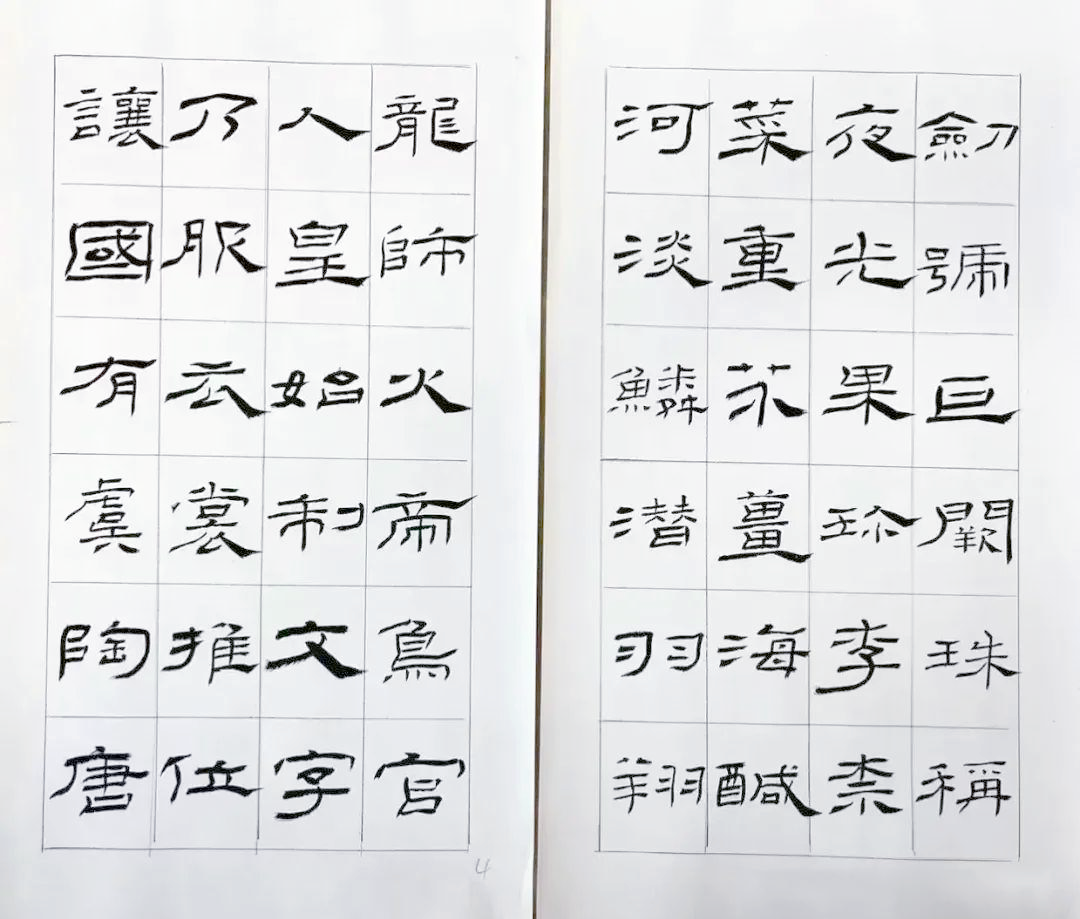 劍號巨闕珠稱
夜光果珍李柰
菜重芥薑海鹹
河淡鱗潛羽翔
龍師火帝鳥官
人皇始制文字
乃服衣裳推位
讓國有虞陶唐
4